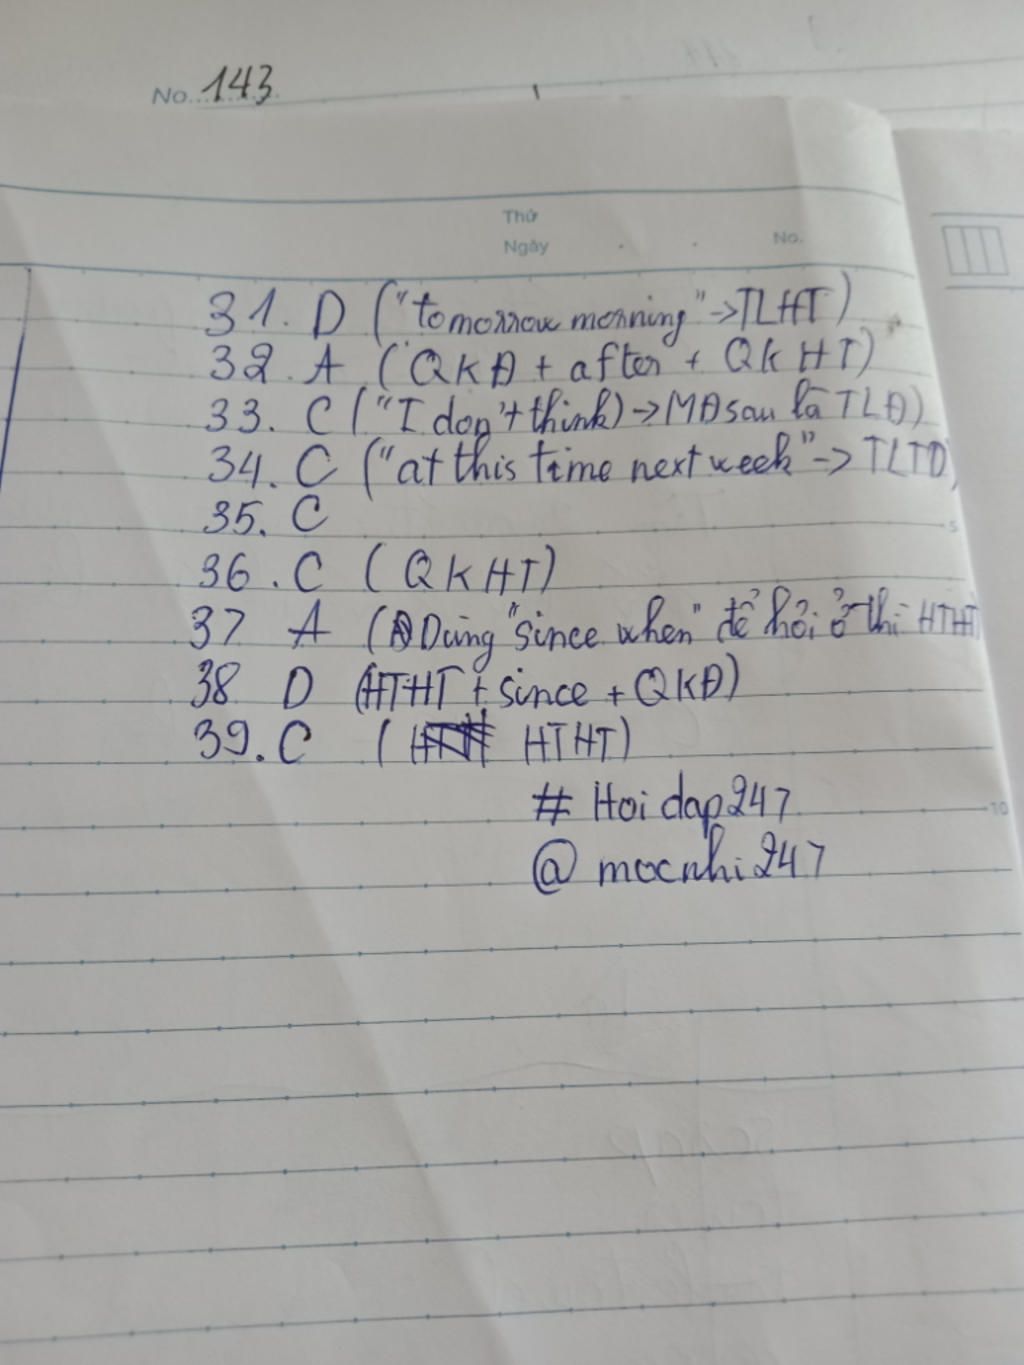 No. 143
Thứ
Ngày
No.
31. D ("tomorrow morning"->TLHT)
32. A (QKĐ + after + QKHT)
33. C ("I don't think)->MĐ sau là TLĐ)
34. C ("at this time next week"->TLTD)
35. C
5
36. C (QKHT)
37 A (Dùng "since when" để hỏi ở thì HTHT)
38 D (HTHT + since + QKĐ)
39. C ( HTHT)
# Hoidap247
10
@ mocnhi247